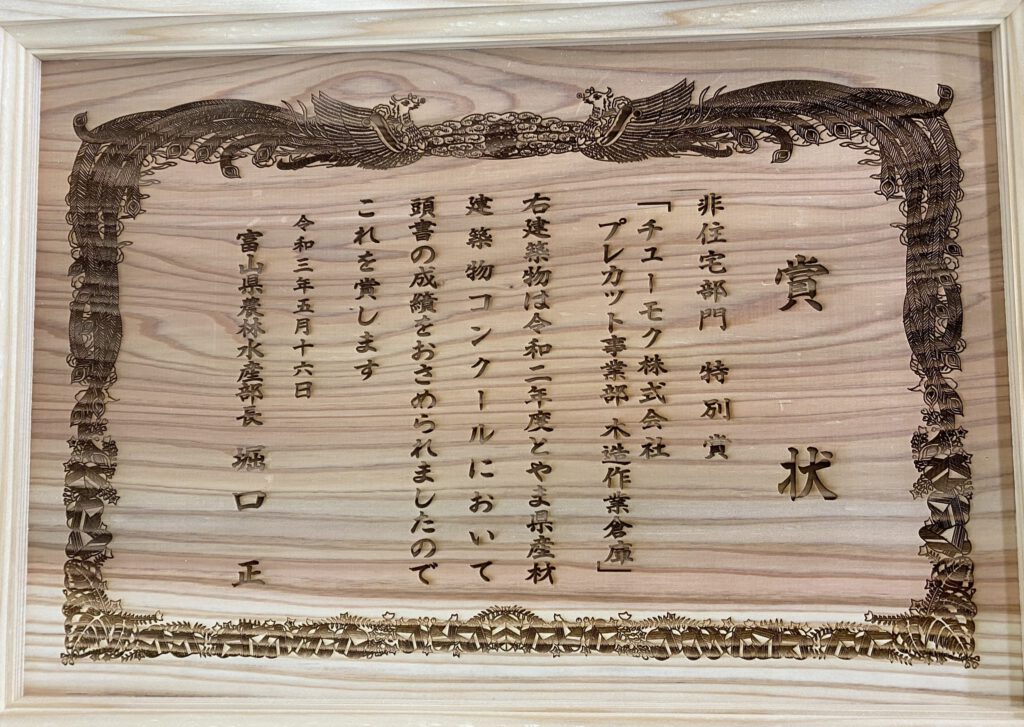 賞状
非住宅部門 特別賞
「チューモク株式会社
プレカット事業部 木造作業倉庫」
右建築物は令和二年度とやま県産材
建築物コンクールにおいて
頭書の成績をおさめられましたので
これを賞します
令和三年五月十六日
富山県農林水産部長 堀口 正